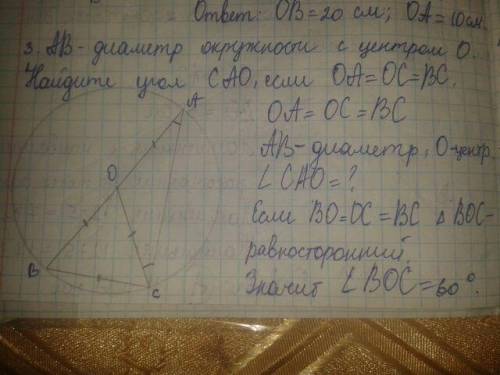 Ответ: OB=20 см; OA=10см.
3. AB- диаметр окружности с центром O.
Найдите угол CAO, если OA=OC=BC.
A
OA=OC=BC
AB-диаметр, O-центр.
O
∠CAO=?
Если BO=OC=BC ∆ BOC-
равносторонний.
B
C
Значит ∠BOC=60°.